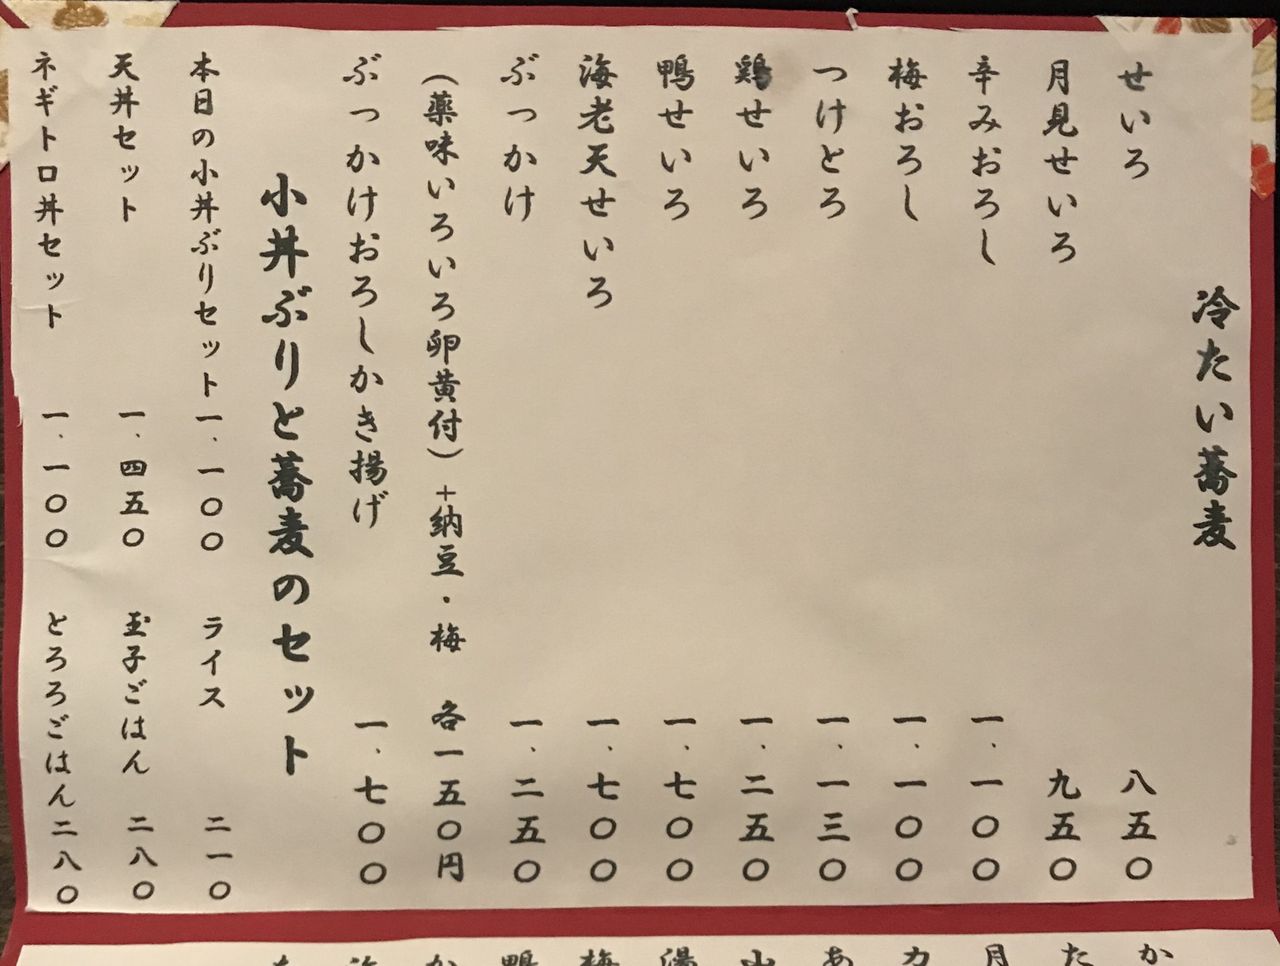 冷たい蕎麦
せいろ 八五〇
月見せいろ 九五〇
辛みおろし 一、一〇〇
梅おろし 一、一〇〇
つけとろ 一、一三〇
鶏せいろ 一、二五〇
鴨せいろ 一、七〇〇
海老天せいろ 一、七〇〇
ぶっかけ 一、二五〇
（薬味いろいろ卵黄付）+納豆・梅 各一五〇円
ぶっかけおろしかき揚げ 一、七〇〇
小丼ぶりと蕎麦のセット
本日の小丼ぶりセット 一、一〇〇 ライス 二一〇
天丼セット 一、四五〇 玉子ごはん 二八〇
ネギトロ丼セット 一、一〇〇 とろろごはん 二八〇
か
た
月
カ
あ
山
湯
梅
鴨
か